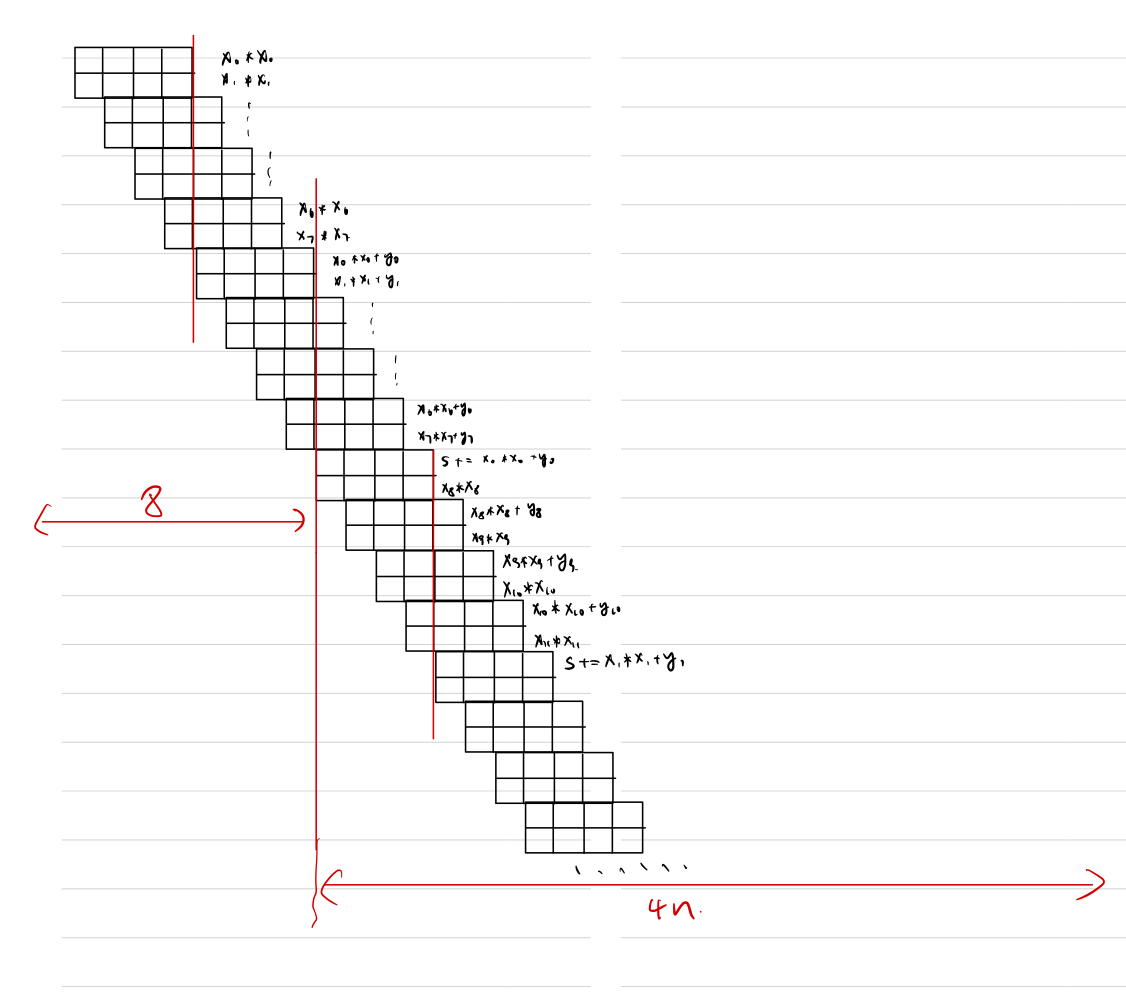 x₀ * x₀
x₁ * x₁
x₆ * x₆
x₇ * x₇
x₀ * x₀ + y₀
x₁ * x₁ + y₁
x₆ * x₆ + y₆
x₇ * x₇ + y₇
S += x₀ * x₀ + y₀
x₈ * x₈
8
x₈ * x₈ + y₈
x₉ * x₉
x₉ * x₉ + y₉
x₁₀ * x₁₀
x₁₀ * x₁₀ + y₁₀
x₁₁ * x₁₁
S += x₁ * x₁ + y₁
4n.